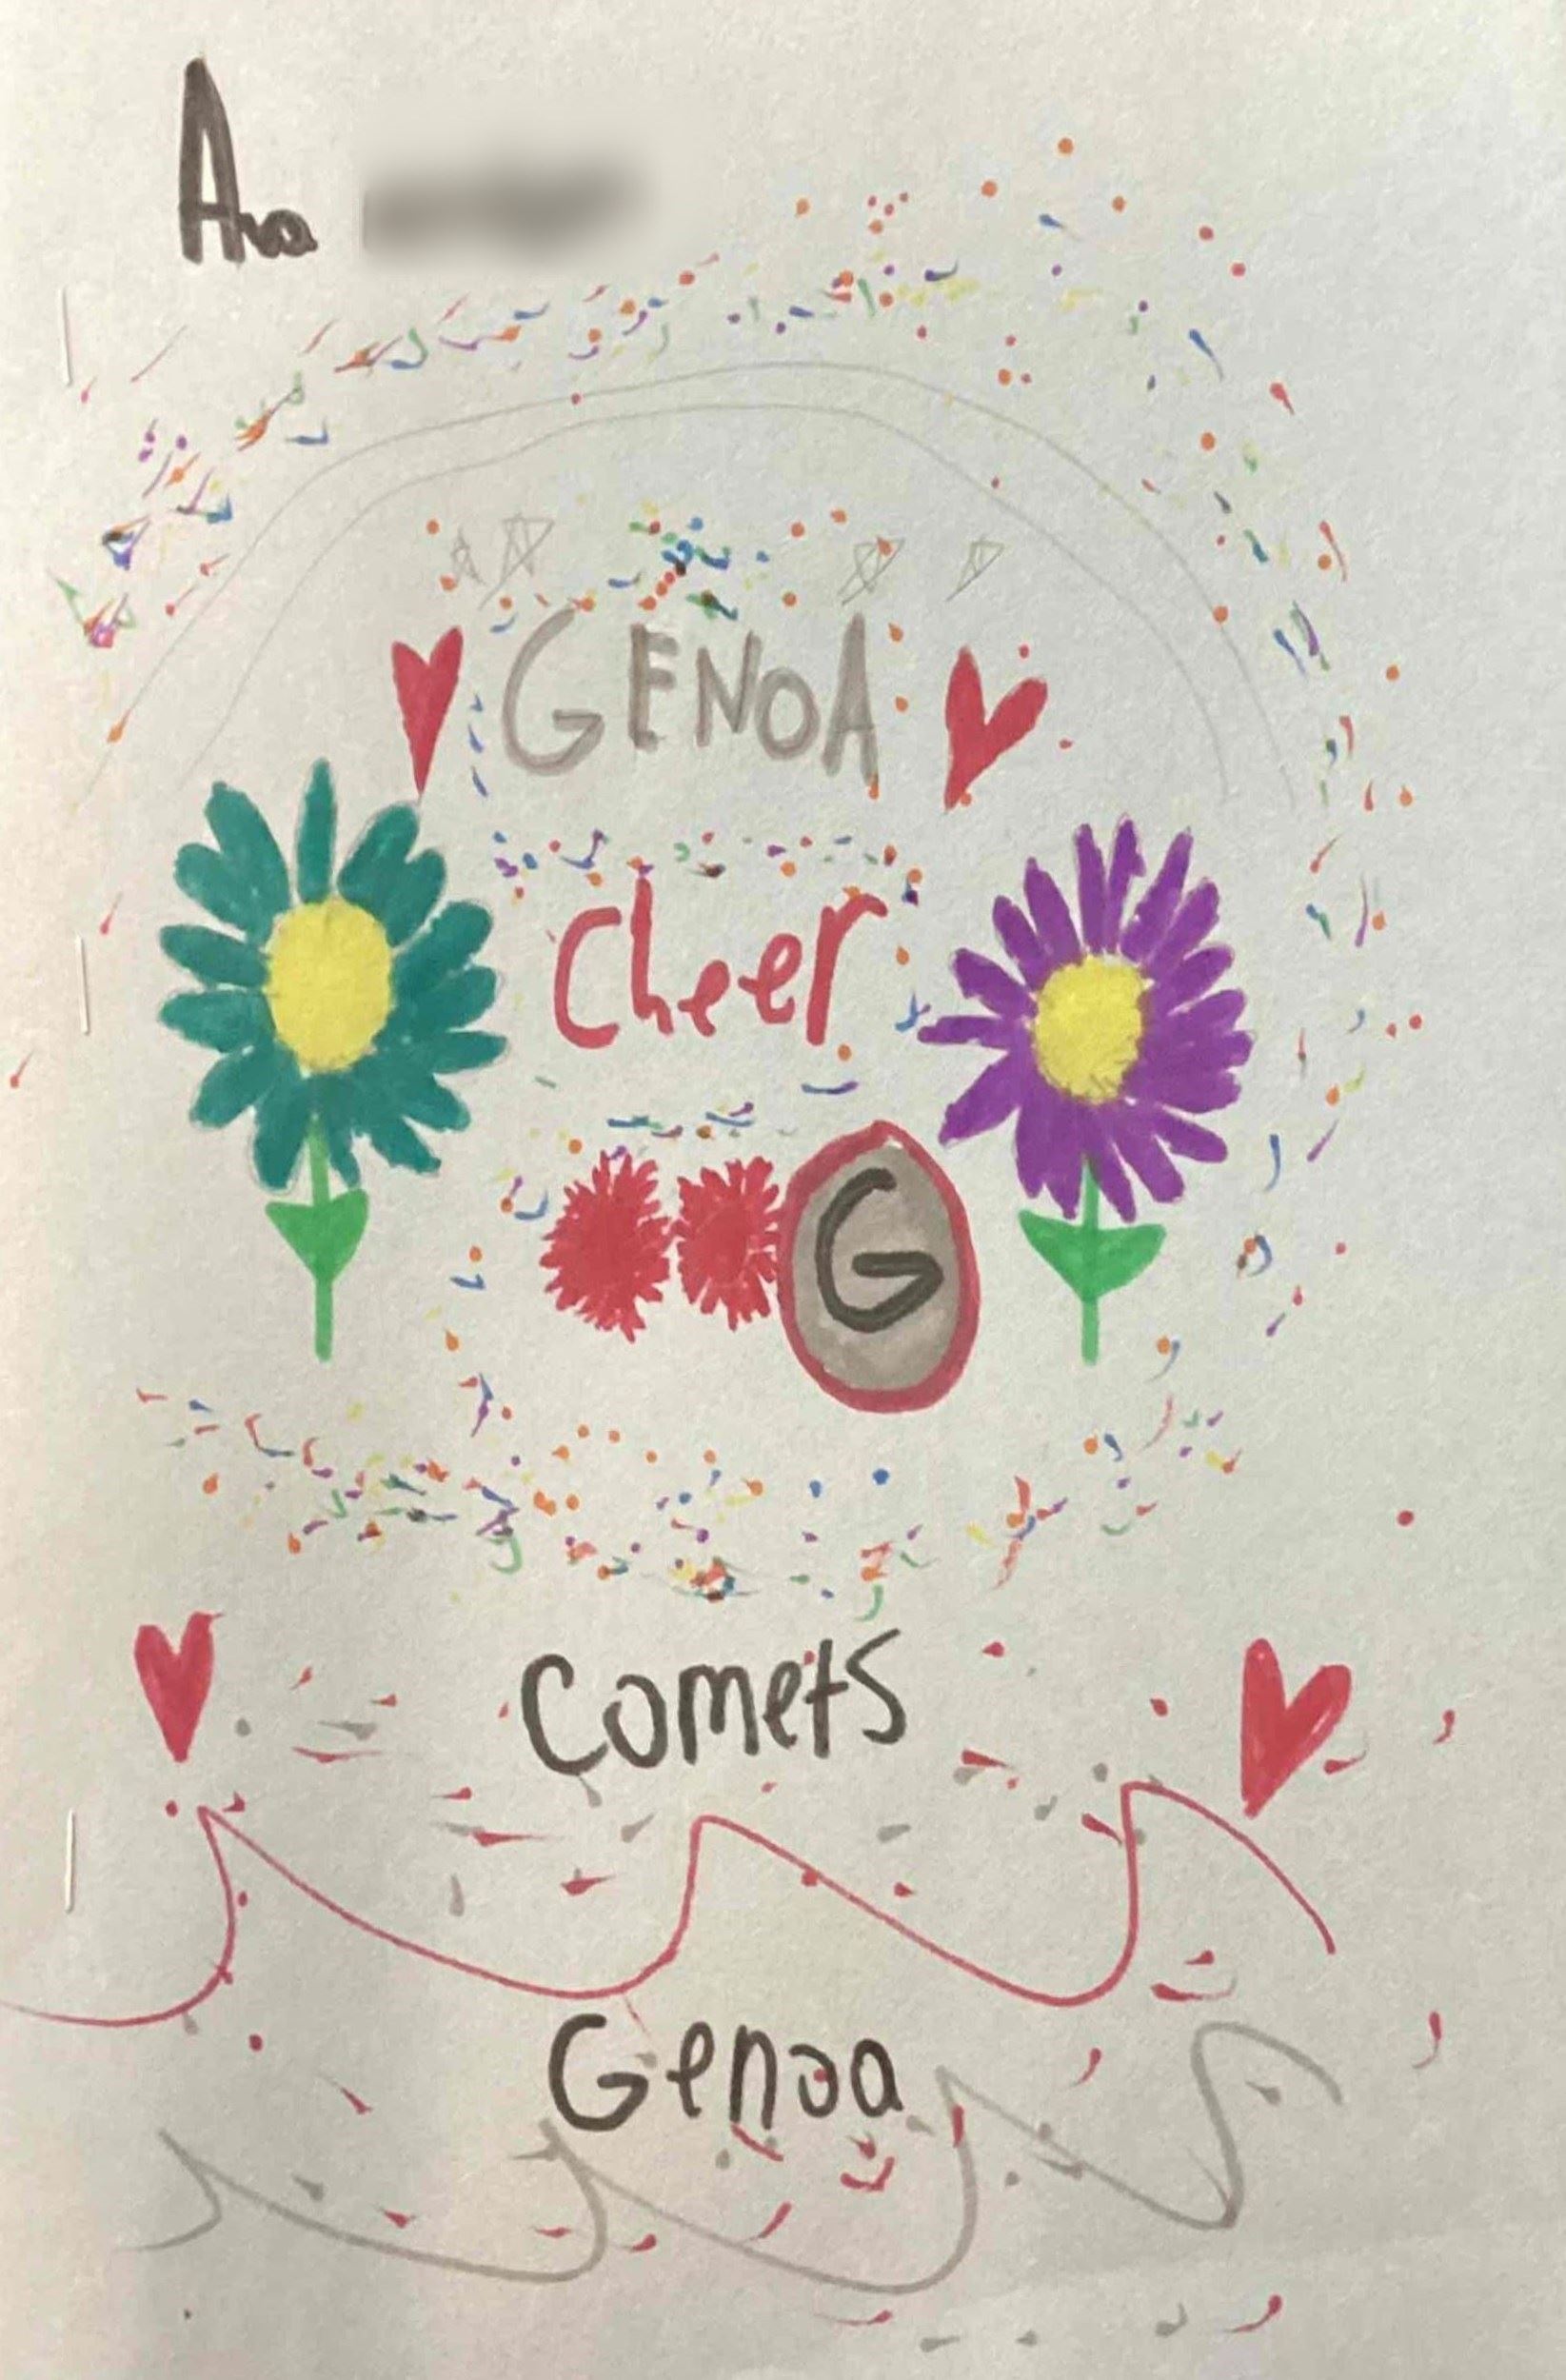 Ava
GENOA
Cheer
G
Comets
Genoa